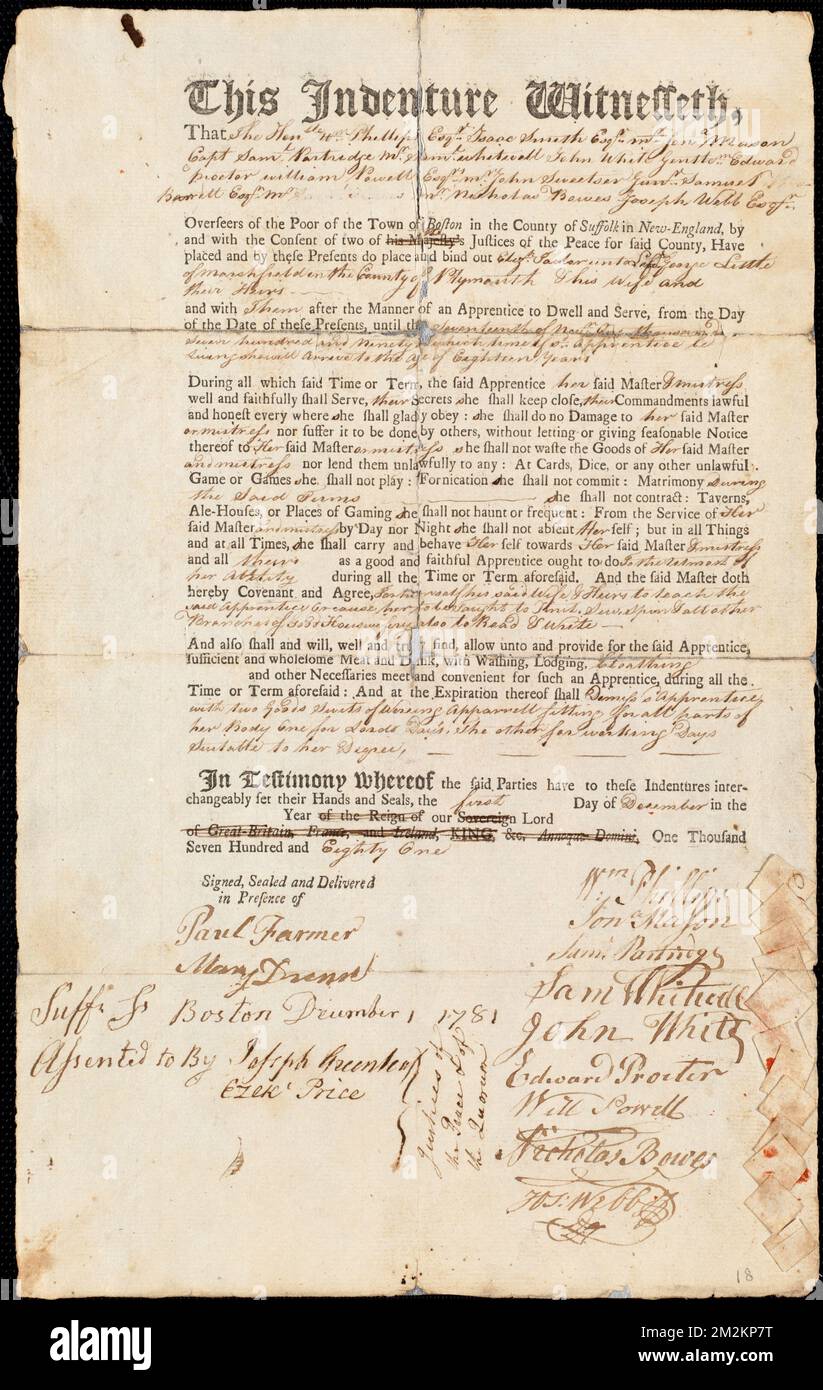 This Indenture Witnesseth,
That The Honble Wm Phillips Esqr. Isaac Smith Esqr. mr. Jona Mason
Capt Saml. Partridge Mr. Saml. Whitwell John White Gentn. Edward
Proctor William Powell Esqrs. mr. John Sweetser Junr. Samuel
Barrell Esqr. Mr. Nicholas Bowes Joseph Webb Esqr.
Overseers of the Poor of the Town of Boston in the County of Suffolk in New-England, by
and with the Consent of two of the his Majesty's Justices of the Peace for said County, Have
placed and by these Presents do place and bind out unto George Little
of Marshfield in the County of Plymouth & his Wife and
their Heirs
and with Them after the Manner of an Apprentice to Dwell and Serve, from the Day
of the Date of these Presents, until the Seventeenth of One thousand
Seven hundred and Ninety which time sd. Apprentice if
Living shewill Arrive to the Age of Eighteen Years
During all which said Time or Term, the said Apprentice her said Master & mistress
well and faithfully shall Serve, their Secrets she shall keep close, their Commandments lawful
and honest every where she shall gladly obey: she shall do no Damage to her said Master
or mistress nor suffer it to be done by others, without letting or giving seasonable Notice
thereof to Her said Master or mistress she shall not waste the Goods of Her said Master
and mistress nor lend them unlawfully to any: At Cards, Dice, or any other unlawful
Game or Games she shall not play: Fornication she shall not commit: Matrimony During
the Said Terms she shall not contract: Taverns,
Ale-Houses, or Places of Gaming she shall not haunt or frequent: From the Service of Her
said Master and mistress by Day nor Night she shall not absent Her self; but in all Things
and at all Times, she shall carry and behave Her self towards Her said Master & mistress
and all theirs as a good and faithful Apprentice ought to do To the Utmost of
her Ability during all the Time or Term aforesaid. And the said Master doth
hereby Covenant and Agree, for himself his said Wife & Heirs to teach the
said Apprentice or cause her to be Taught to Knit, Sew, Spin & all other
Branches of Good Housewifery also to Read & Write
And also shall and will, well and truly find, allow unto and provide for the said Apprentice,
sufficient and wholesome Meat and Drink, with Washing, Lodging, Cloathing
and other Necessaries meet and convenient for such an Apprentice, during all the
Time or Term aforesaid: And at the Expiration thereof shall Dismiss sd Apprentice
with two Good Suits of Wearing Apparrell fitting for all parts of
her Body One for Lords Days, the other for working Days
Suitable to her Degree,
In Testimony whereof the said Parties have to these Indentures inter-
changeably set their Hands and Seals, the first Day of December in the
Year of the Reign of our Sovereign Lord
of Great-Britain, France, and Ireland, KING, &c. Annoque Domini, One Thousand
Seven Hundred and Eighty One
Signed, Sealed and Delivered
in Presence of
Paul Farmer
Mary
Wm Phillips
Jona Mason
Saml Partridge
Sam Whitwell
John White
Edward Procter
Will Powell
Nicholas Bowes
Jos. Webb
Suff. Ss Boston December 1 1781
Assented to By Joseph Greenleaf
Ezekl Price
Justices of
the Peace & of
the Quorum
18
alamy
alamy
Image ID: 2M2KP7T
www.alamy.com